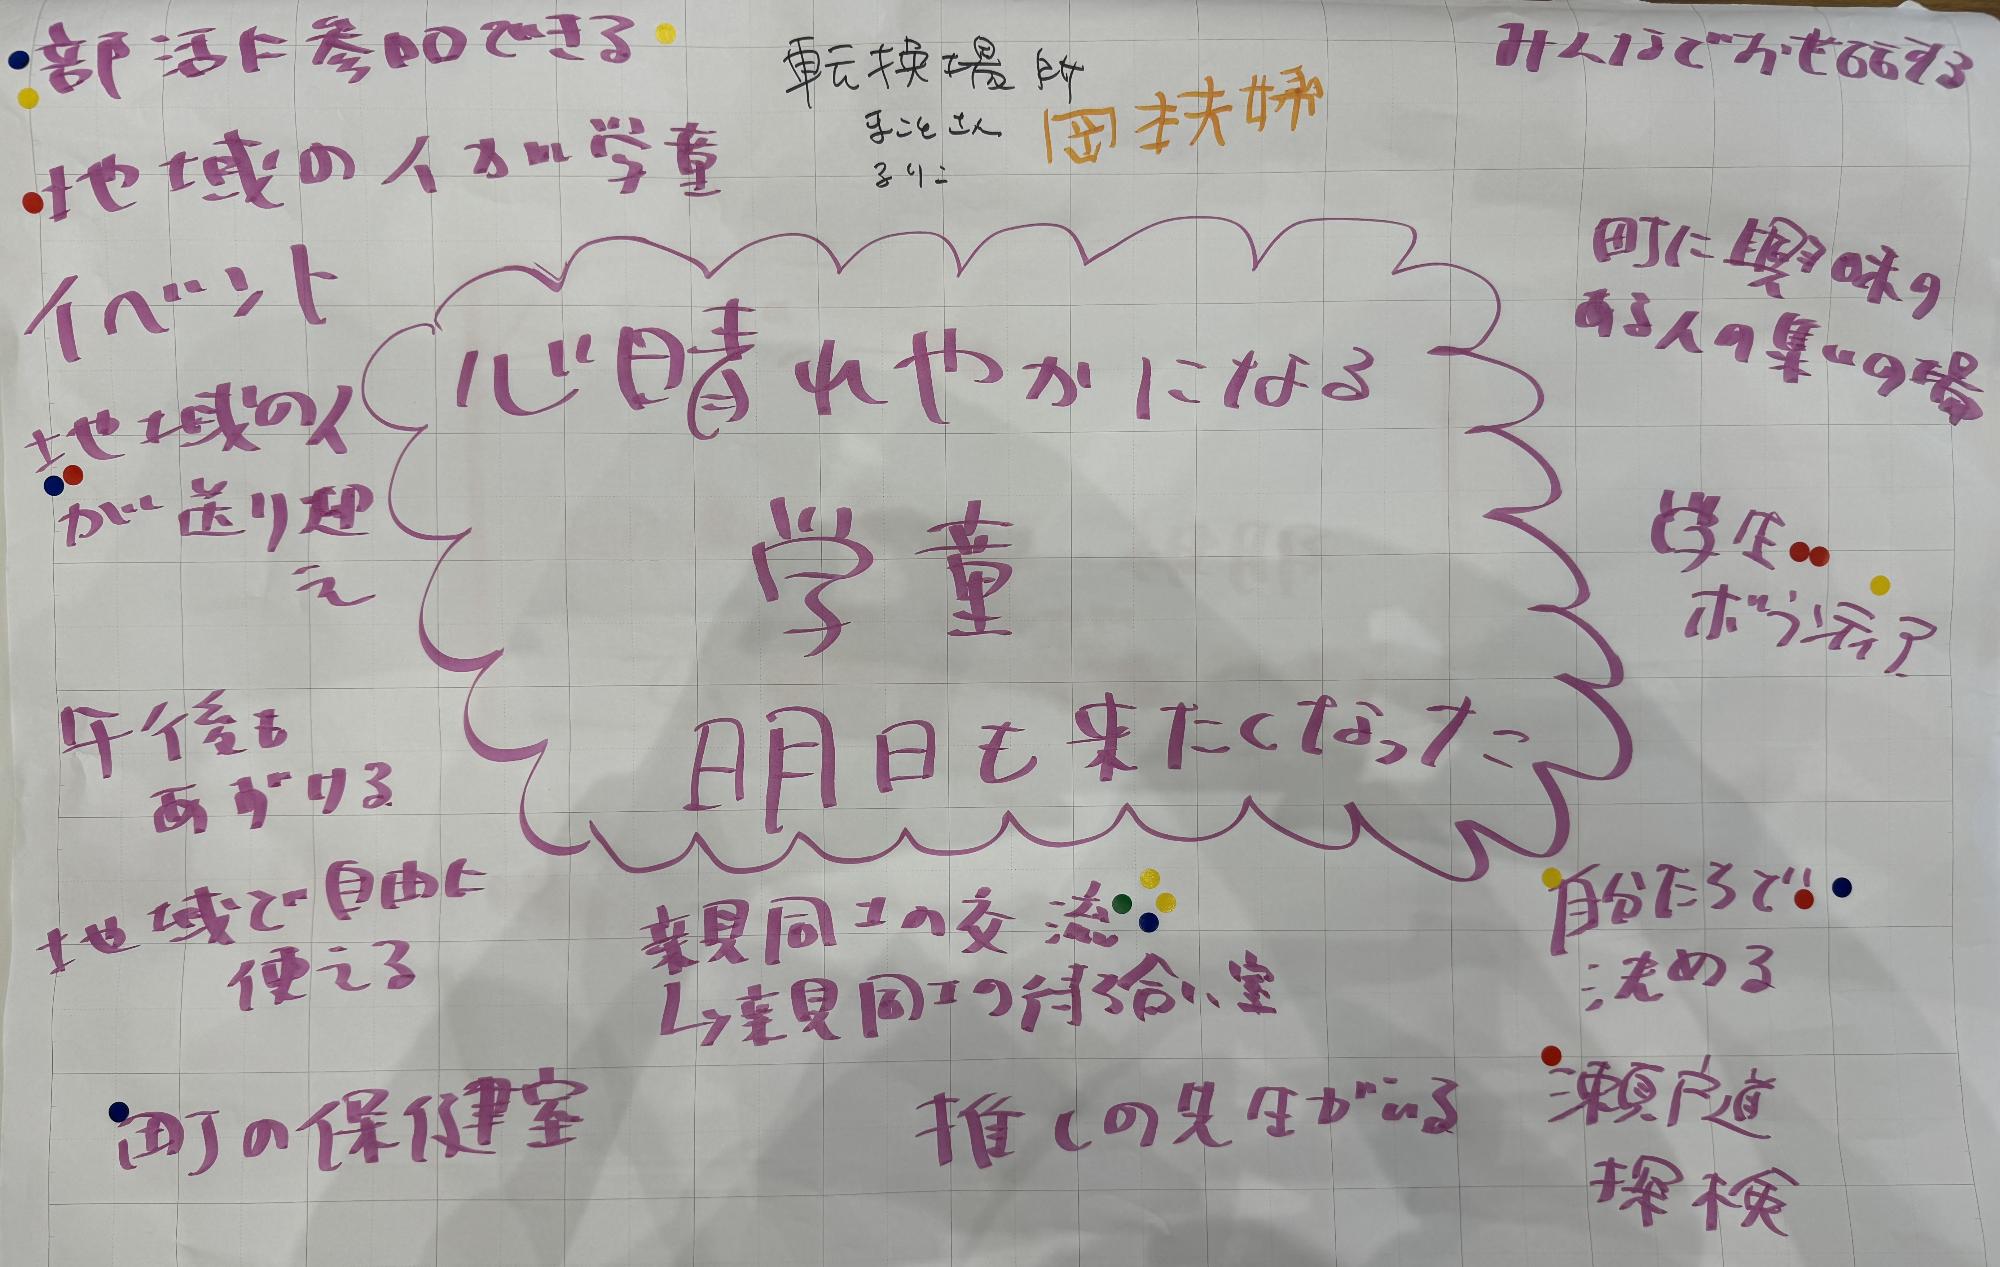 部活に参加できる
地域の人が学童
イベント
地域の人
が送り迎
え
午後も
あずける
地域で自由に
使える
町の保健室
転換場所
まことさん
るりこ
岡夫婦
心晴れやかになる
学童
明日も来たくなった
親同士の交流
↳親同士の待ち合い室
推しの先生がいる
みんなで
町に興味の
ある人の集いの場
学生
ボランティア
自分たちで
決める
瀬戸道
探検